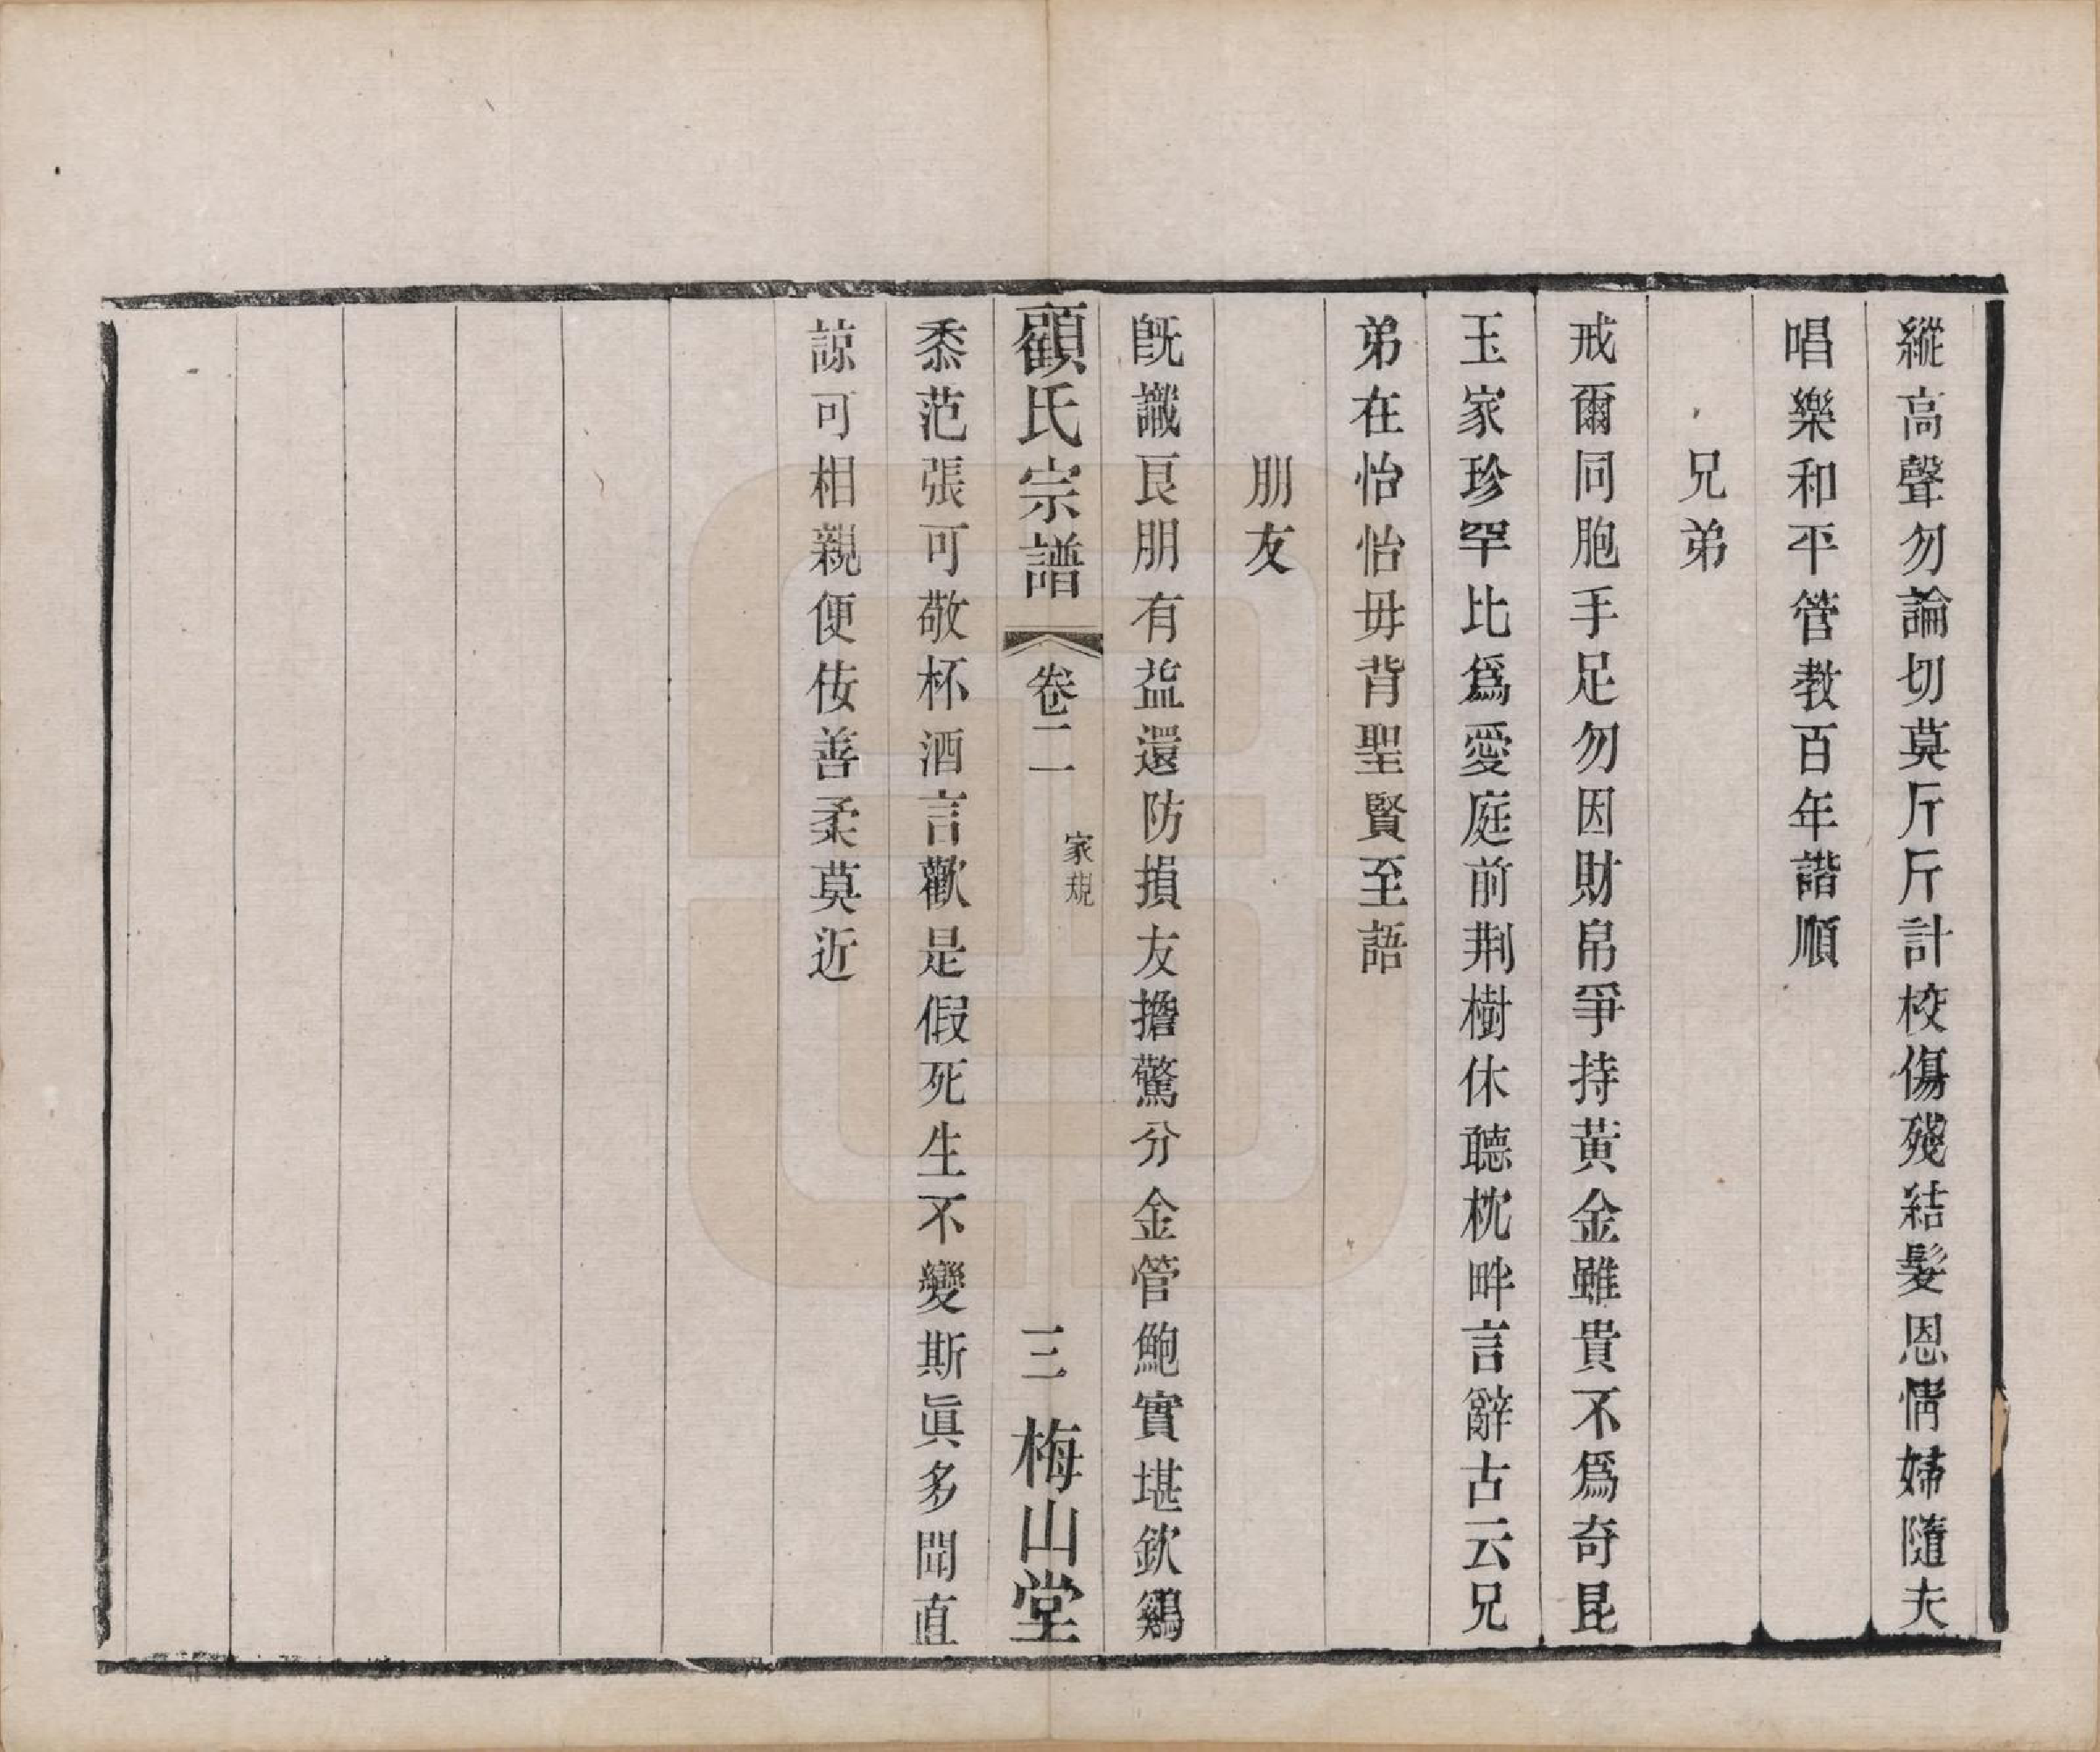 縱高聲勿論切莫斤斤計校傷殘結髮恩情婦隨夫
唱樂和平管教百年諧順
兄弟
戒爾同胞手足勿因財帛爭持黃金雖貴不爲奇昆
玉家珍罕比爲愛庭前荆樹休聽枕畔言辭古云兄
弟在怡怡毋背聖賢至語
朋友
旣識良朋有益還防損友擔驚分金管鮑實堪欽鷄
顧氏宗譜 卷二 家規 三 梅山堂
黍范張可敬杯酒言歡是假死生不變斯眞多聞直
諒可相親便佞善柔莫近